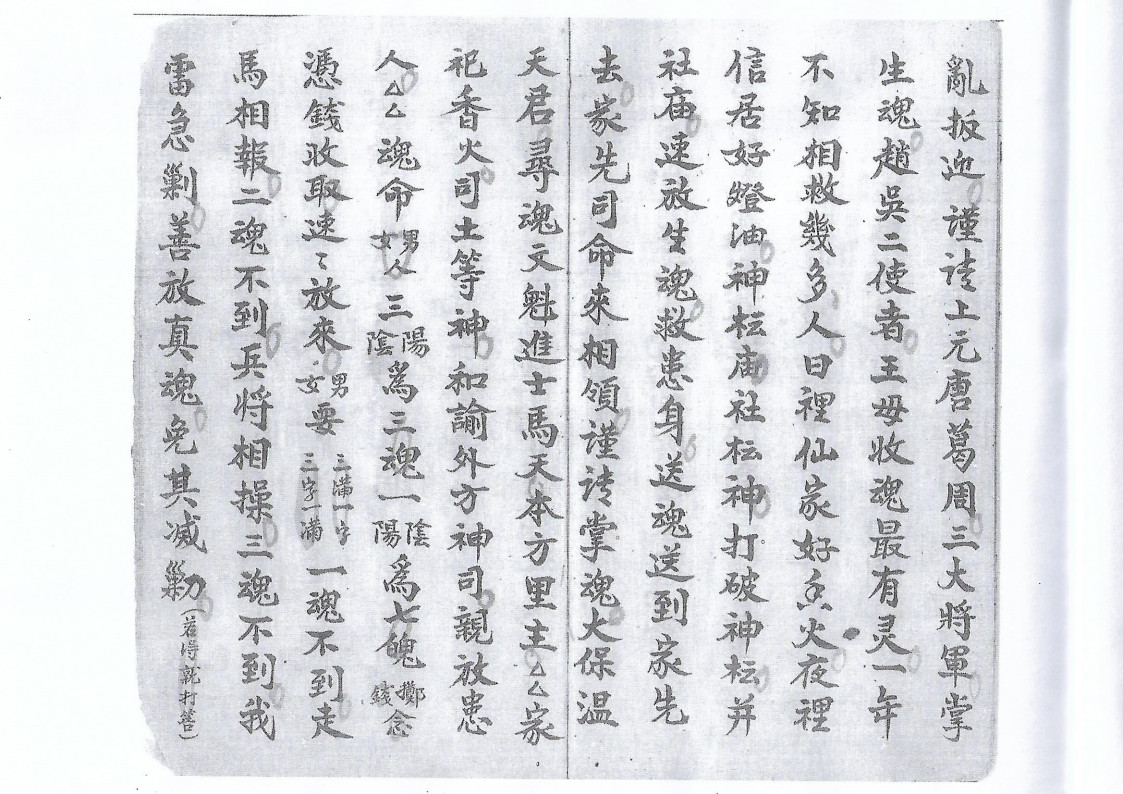 亂扳迎謹請上元唐葛周三大將軍掌
生魂趙吳二使者王母收魂最有灵一年
不知相救幾多人日裡仙家好香火夜裡
信居好燈油神枟庙社枟神打破神枟并
社庙速放生魂救患身送魂送到家先
去家先司命來相領謹請掌魂大保温
天君尋魂文魁進士馬天本方里主厶厶家
祀香火司土等神和諭外方神司親放患
人厶厶魂命男女人三陽陰爲三魂一陰陽爲七魄擲錢念
憑錢收取速〻放來男女要三滿一字三字一滿一魂不到走
馬相報二魂不到兵将相操三魂不到我
雷急剿善放真魂免其减剿(若得就打筶)